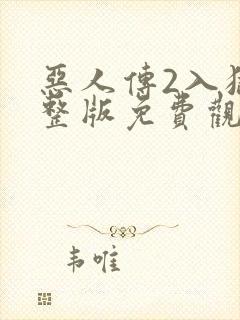 惡人傳2入獄
整版免費觀
韦唯